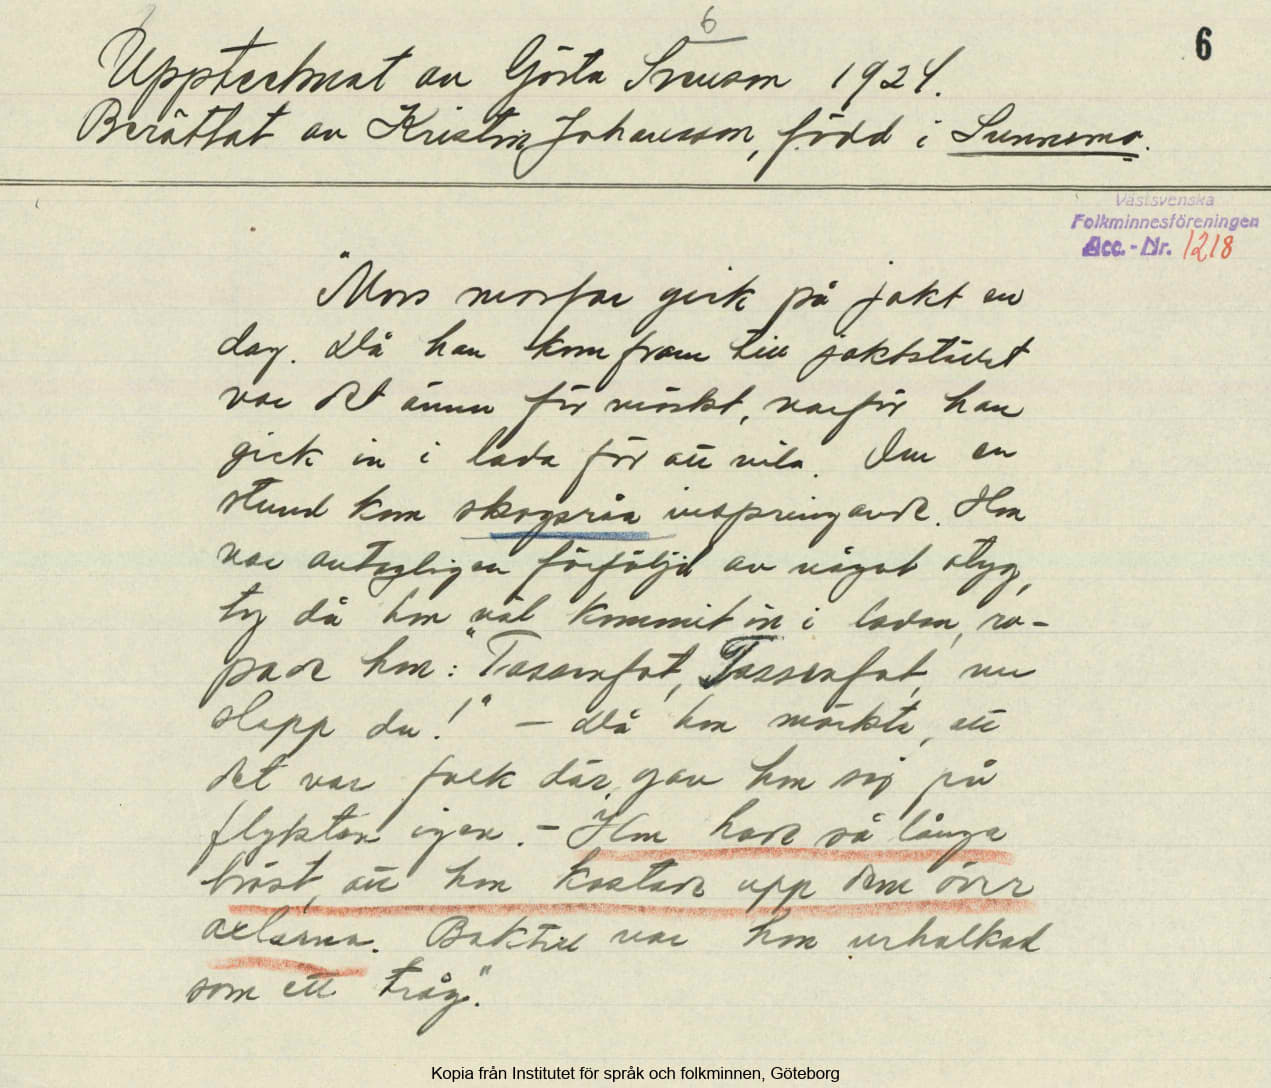 6
6
Upptecknat av Gösta Svenson 1924.
Berättat av Kristin Johansson, född i Sunnemo.
Västsvenska
Folkminnesföreningen
Acc.-Nr. 1218
"Mors morfar gick på jakt en
dag. Då han kom fram till jaktstället
var det ännu för mörkt, varför han
gick in i lada för att vila. Om en
stund kom skogsråa inspringande. Hon
var antagligen förföljd av något otyg,
ty då hon väl kommit in i ladan, ro-
pade hon: "Tassenfot, Tassenfot, nu
slapp du!" – Då hon märkte, att
det var folk där, gav hon sig på
flykten igen. – Hon hade så långa
bröst, att hon kastade upp dem över
axlarna. Baktill var hon urholkad
som ett tråg."
Kopia från Institutet för språk och folkminnen, Göteborg